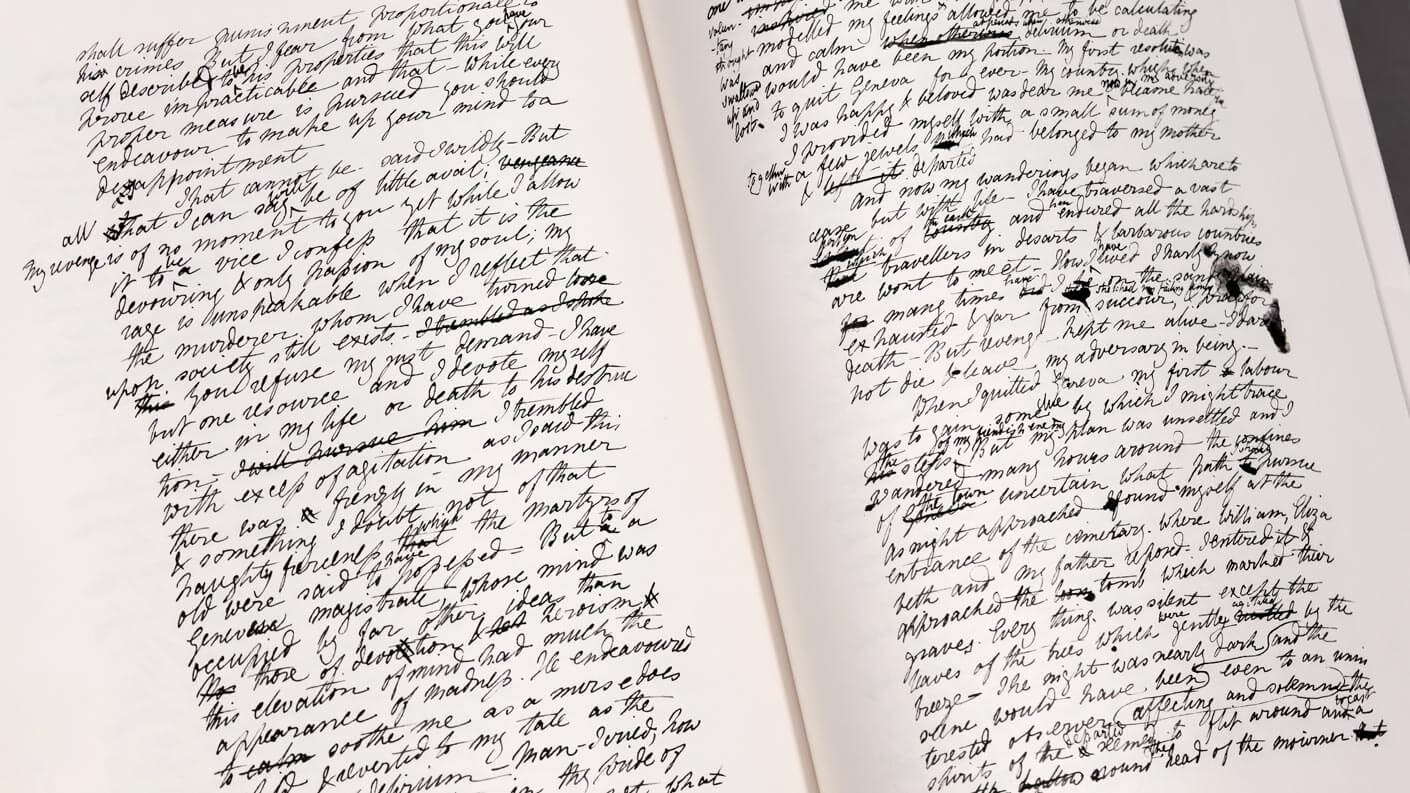 shall suffer punishment proportionate to
his crimes But I fear from what you have
self described to be his properties that this will
prove impracticable and that – while every
proper measure is pursued you should
endeavour to make up your mind to a
disappointment
That cannot be – said I wildly – But
all that I can say will be of little avail; vengeance
My revenge is of no moment to you yet while I allow
it to be a vice I confess that it is the
devouring & only passion of my soul; my
rage is unspeakable when I reflect that
the murderer whom I have turned loose
upon society still exists. I trembled as I spoke
this You refuse my just demand – I have
but one resource and I devote myself
either in my life or death to his destruc
tion – I will pursue him I trembled
with excess of agitation as I said this
there was a frenzy in my manner
& something I doubt not of that
haughty fierceness that which the martyrs of
old were said to have possessed – But to a
Genevese magistrate whose mind was
occupied by far other ideas than
those of devotion & heroism
this elevation of mind had much the
appearance of madness. He endeavoured
to calm soothe me as a nurse does
& reverted to my tale as the
delirium – Man – I cried, how
thy pride of
what
voluntary thought was swallowed up and lost.
modelled my feelings & allowed me to be calculating
and calm when otherwise delirium or death
would have been my portion – My first resolution was
to quit Geneva for ever – My country which when
I was happy & beloved was dear me now became hate
I provided myself with a small sum of money
together with a few jewels which had belonged to my mother
& departed
And now my wanderings began which are to
cease but with life – I have traversed a vast
portion of the earth and have endured all the hardships
which travellers in desarts & barbarous countries
are wont to meet – How I have lived I hardly know
many times have I on the sand
exhausted & far from succour, & prayed for
death – But revenge kept me alive – I dared
not die & leave my adversary in being. –
When I quitted Geneva my first labour
was to gain some clue by which I might trace
the steps of my fiendish enemy. But my plan was unsettled and I
wandered many hours around the confines
of the town uncertain what path to pursue
As night approached I found myself at the
entrance of the cimetary where William, Eliza
beth and my father reposed. I entered it &
approached the tomb which marked their
graves. Every thing was silent except the
leaves of the trees which were gently agitated by the
breeze – The night was nearly dark and the
scene would have been even to an unin
terested observer affecting and solemn. The
spirits of the departed seemed to flit around and to cast a
around head of the mourner